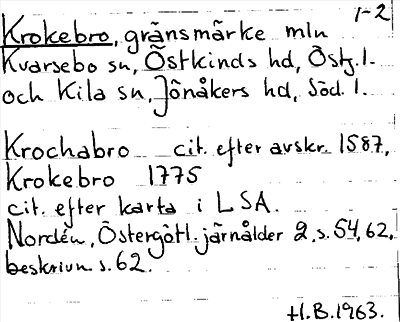 1-2
Krokebro, gränsmärke mln
Kvarsebo sn, Östkinds hd, Östg. l.
och Kila sn, Jönåkers hd, Söd. l.
Krochabro cit. efter avskr. 1587,
Krokebro 1775
cit. efter karta i LSA.
Nordén, Östergötl. järnålder 2, s. 54, 62,
beskrivn s. 62.
H.B. 1963.